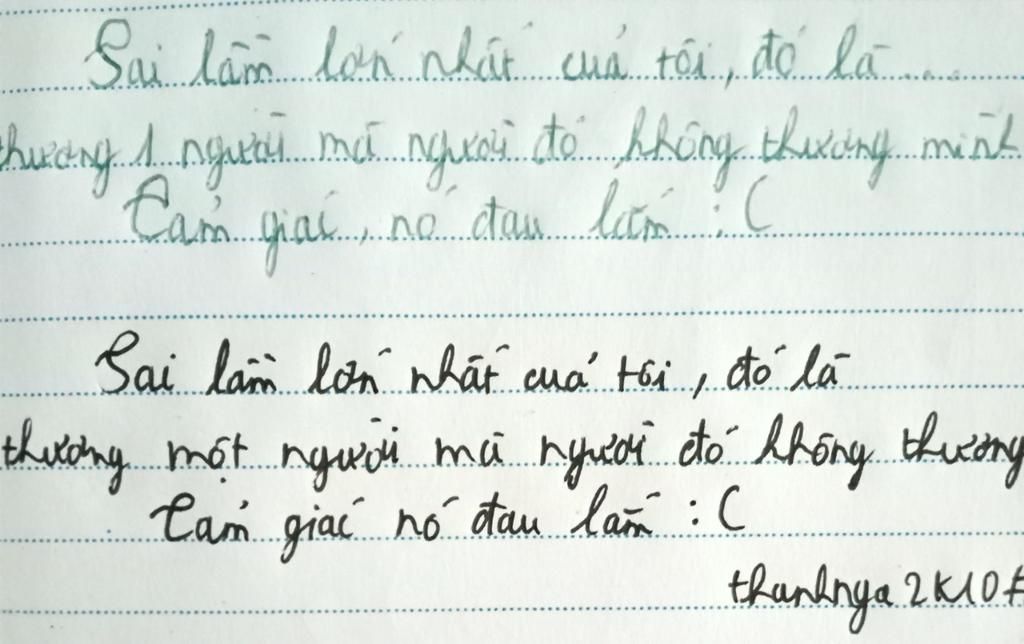 Sai lầm lớn nhất của tôi, đó là ....
thương 1 người mà người đó không thương mình
Cảm giác, nó đau lắm : (
Sai lầm lớn nhất của tôi, đó là
thương một người mà người đó không thương
Cảm giác nó đau lắm : (
thanhnya 2K10